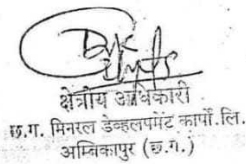 क्षेत्रीय अधिकारी
छ.ग. मिनरल डेव्हलपमेंट कार्पो.लि.
अम्बिकापुर (छ.ग.)